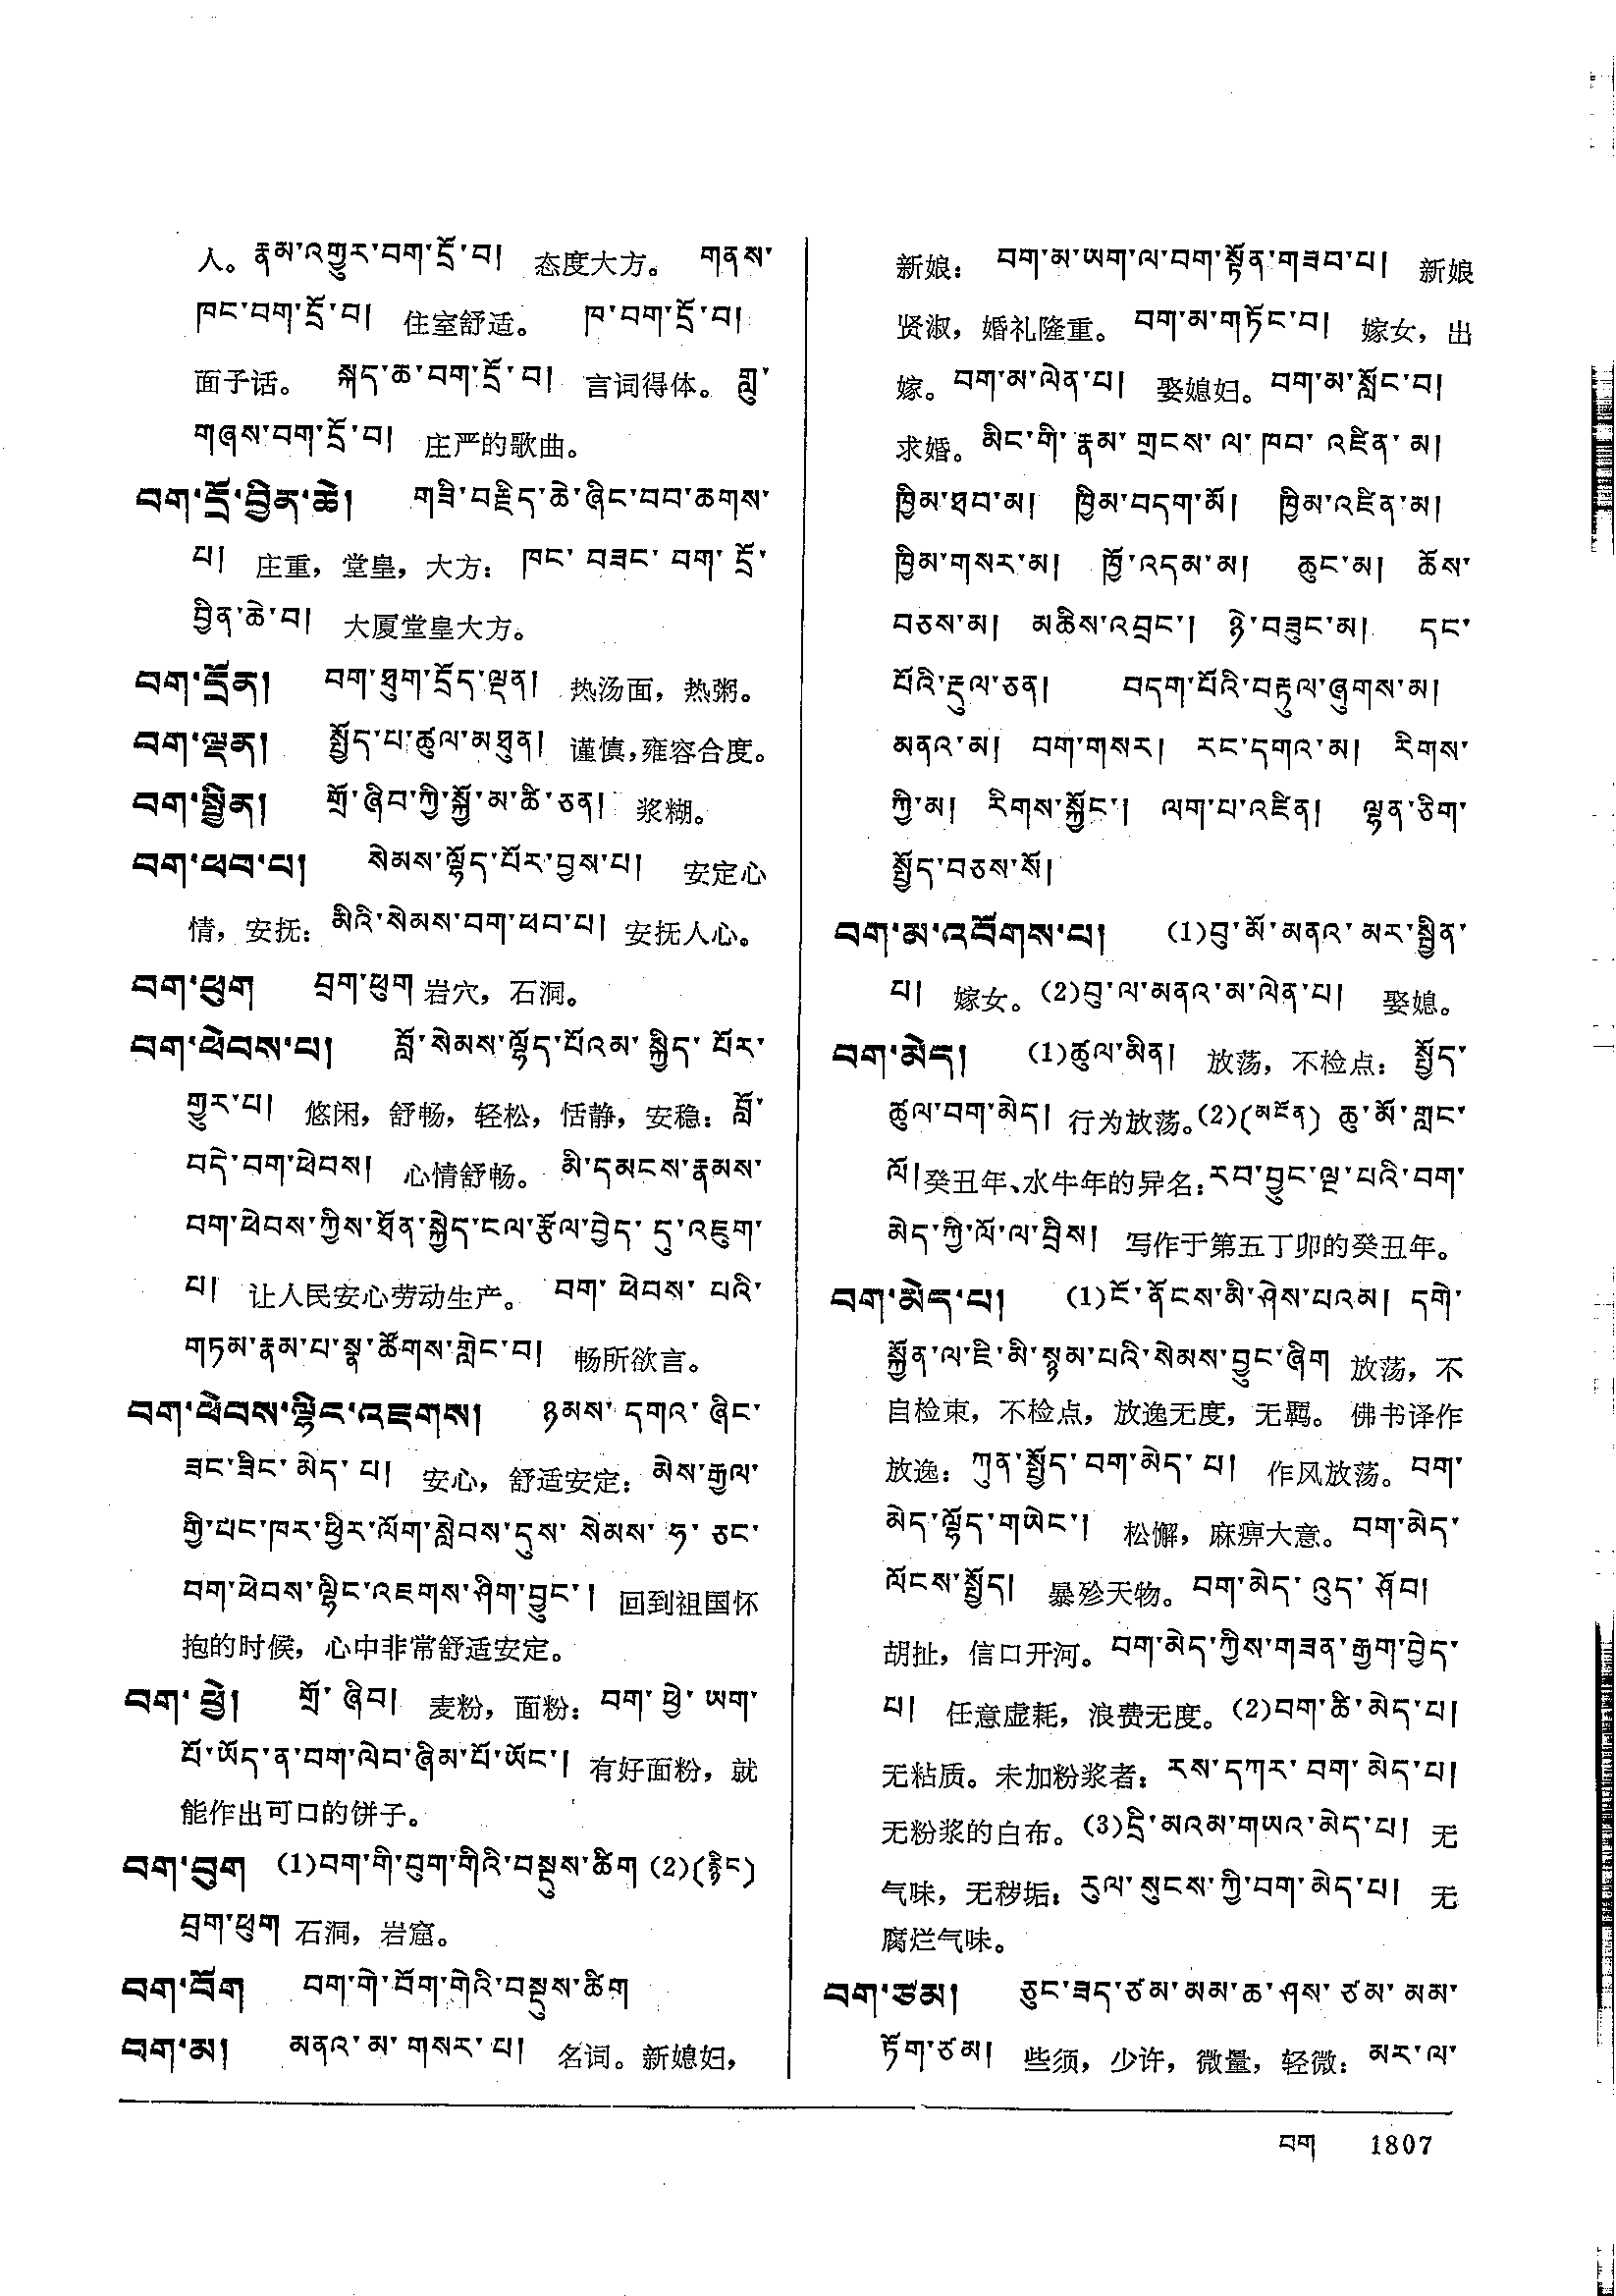 人。རྣམ་འགྱུར་བག་དྲོ་བ། 态度大方。 གནས་
ཁང་བག་དྲོ་བ། 住室舒适。 ཁ་བག་དྲོ་བ།
面子话。 སྐད་ཆ་བག་དྲོ་བ། 言词得体。 གླུ་
གཞས་བག་དྲོ་བ། 庄严的歌曲。
བག་དྲོ་བྱིན་ཆེ། གཟི་བརྗིད་ཆེ་ཞིང་བབ་ཆགས་
པ། 庄重，堂皇，大方： ཁང་བཟང་བག་དྲོ་
བྱིན་ཆེ་བ། 大厦堂皇大方。
བག་དྲོན། བག་ཐུག་དྲོད་ལྡན། 热汤面，热粥。
བག་ལྡན། སྤྱོད་པ་ཚུལ་མཐུན། 谨慎，雍容合度。
བག་སྦྱིན། གྲོ་ཞིབ་ཀྱི་སྐྱོ་མ་ཚི་ཅན། 浆糊。
བག་ཕབ་པ། སེམས་ལྷོད་པོར་བྱས་པ། 安定心
情，安抚： མིའི་སེམས་བག་ཕབ་པ། 安抚人心。
བག་ཕུག བྲག་ཕུག 岩穴，石洞。
བག་ཕེབས་པ། བློ་སེམས་ལྷོད་པོའམ་སྐྱིད་པོར་
གྱུར་པ། 悠闲，舒畅，轻松，恬静，安稳： བློ་
བདེ་བག་ཕེབས། 心情舒畅。 མི་དམངས་རྣམས་
བག་ཕེབས་ཀྱིས་ཐོན་སྐྱེད་ངལ་རྩོལ་བྱེད་དུ་འཇུག་
པ། 让人民安心劳动生产。 བག་ཕེབས་པའི་
གཏམ་རྣམ་པ་སྣ་ཚོགས་གླེང་བ། 畅所欲言。
བག་ཕེབས་ལྷིང་འཇགས། ཉམས་དགའ་ཞིང་
ཟང་ཟིང་མེད་པ། 安心，舒适安定： མེས་རྒྱལ་
གྱི་པང་ཁར་ཕྱིར་ལོག་སླེབས་དུས་སེམས་ཧ་ཅང་
བག་ཕེབས་ལྷིང་འཇགས་ཤིག་བྱུང་། 回到祖国怀
抱的时候，心中非常舒适安定。
བག་ཕྱེ། གྲོ་ཞིབ། 麦粉，面粉： བག་ཕྱེ་ཡག་
པོ་ཡོད་ན་བག་ལེབ་ཞིམ་པོ་ཡོང་། 有好面粉，就
能作出可口的饼子。
བག་བུག (1)བག་གི་བུག་གིའི་བསྡུས་ཚིག (2)(རྙིང)
བྲག་ཕུག 石洞，岩窟。
བག་བོག བག་གེ་བོག་གེའི་བསྡུས་ཚིག
བག་མ། མནའ་མ་གསར་པ། 名词。新媳妇，
新娘： བག་མ་ཡག་ལ་བག་སྟོན་གཟབ་པ། 新娘
贤淑，婚礼隆重。 བག་མ་གཏོང་བ། 嫁女，出
嫁。བག་མ་ལེན་པ། 娶媳妇。བག་མ་སློང་བ།
求婚。མིང་གི་རྣམ་གྲངས་ལ་ཁབ་འཛིན་མ།
ཁྱིམ་ཐབ་མ། ཁྱིམ་བདག་མོ། ཁྱིམ་འཛིན་མ།
ཁྱིམ་གསར་མ། ཁྱོ་འདམ་མ། ཆུང་མ། ཆོས་
བཅས་མ། མཆིས་འབྲང་། ཉེ་བཟུང་མ། དང་
པོའི་རྡུལ་ཅན། བདག་པོའི་བརྟུལ་ཞུགས་མ།
མནའ་མ། བག་གསར། རང་དགའ་མ། རིགས་
ཀྱི་མ། རིགས་སྐྱོང་། ལག་པ་འཛིན། ལྷན་ཅིག་
སྤྱོད་བཅས་སོ།
བག་མ་འབོགས་པ། (1)བུ་མོ་མནའ་མར་སྦྱིན་
པ། 嫁女。(2)བུ་ལ་མནའ་མ་ལེན་པ། 娶媳。
བག་མེད། (1)ཚུལ་མིན། 放荡，不检点： སྤྱོད་
ཚུལ་བག་མེད། 行为放荡。(2)(མངོན) ཆུ་མོ་གླང་
ལོ། 癸丑年、水牛年的异名：རབ་བྱུང་ལྔ་པའི་བག་
མེད་ཀྱི་ལོ་ལ་བྲིས། 写作于第五丁卯的癸丑年。
བག་མེད་པ། (1)ངོ་ནོངས་མི་ཤེས་པའམ། དགེ་
སྐྱོན་ལ་ཇི་མི་སྙམ་པའི་སེམས་བྱུང་ཞིག 放荡，不
自检束，不检点，放逸无度，无羁。佛书译作
放逸： ཀུན་སྤྱོད་བག་མེད་པ། 作风放荡。བག་
མེད་ལྷོད་གཡེང་། 松懈，麻痹大意。བག་མེད་
ལོངས་སྤྱོད། 暴殄天物。བག་མེད་འུད་ཤོབ།
胡扯，信口开河。བག་མེད་ཀྱིས་གཟན་རྒྱག་བྱེད་
པ། 任意虚耗，浪费无度。(2)བག་ཚི་མེད་པ།
无粘质。未加粉浆者： རས་དཀར་བག་མེད་པ།
无粉浆的白布。(3)དྲི་མའམ་གཡའ་མེད་པ། 无
气味，无秽垢： རུལ་སུངས་ཀྱི་བག་མེད་པ། 无
腐烂气味。
བག་ཙམ། ཅུང་ཟད་ཙམ་མམ་ཆ་ཤས་ཙམ་མམ་
ཏོག་ཙམ། 些须，少许，微量，轻微： མར་ལ་
བག 1807